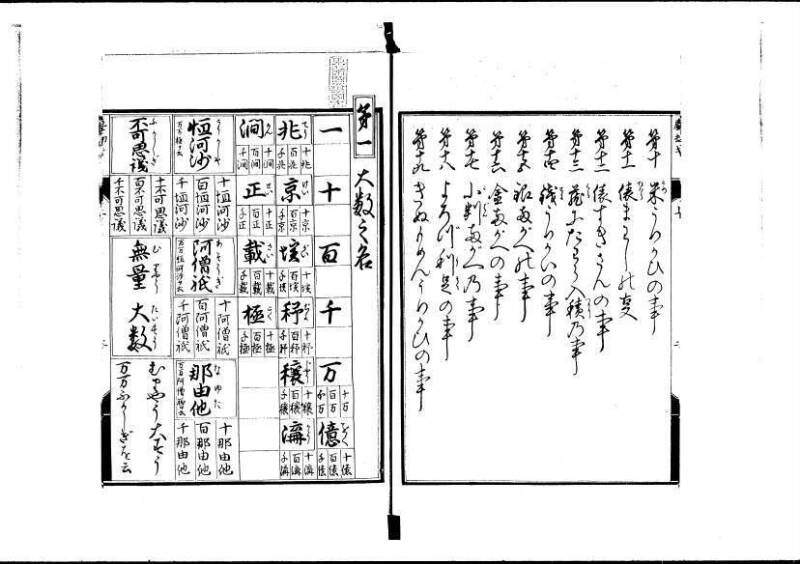 第十 米うりかひの事
第十一 俵まわしの事
第十二 俵すぎさんの事
第十三 蔵にたわら入積乃事
第十四 銭うりかいの事
第十五 銀両がへの事
第十六 金両がへの事
第十七 小判両がへ乃事
第十八 よろづ利足の事
第十九 きぬもめんうりかひの事
第一 大数之名
一
十
百
千
万
十万
百万
千万
億
十億
百億
千億
兆
十兆
百兆
千兆
京
十京
百京
千京
垓
十垓
百垓
千垓
秭
十秭
百秭
千秭
穣
十穣
百穣
千穣
溝
十溝
百溝
千溝
澗
十澗
百澗
千澗
正
十正
百正
千正
載
十載
百載
千載
極
十極
百極
千極
恒河沙
十恒河沙
百恒河沙
千恒河沙
阿僧祇
十阿僧祇
百阿僧祇
千阿僧祇
那由他
十那由他
百那由他
千那由他
不可思議
十不可思議
百不可思議
千不可思議
無量大数
むりやう大すう
万万ふかしぎを云